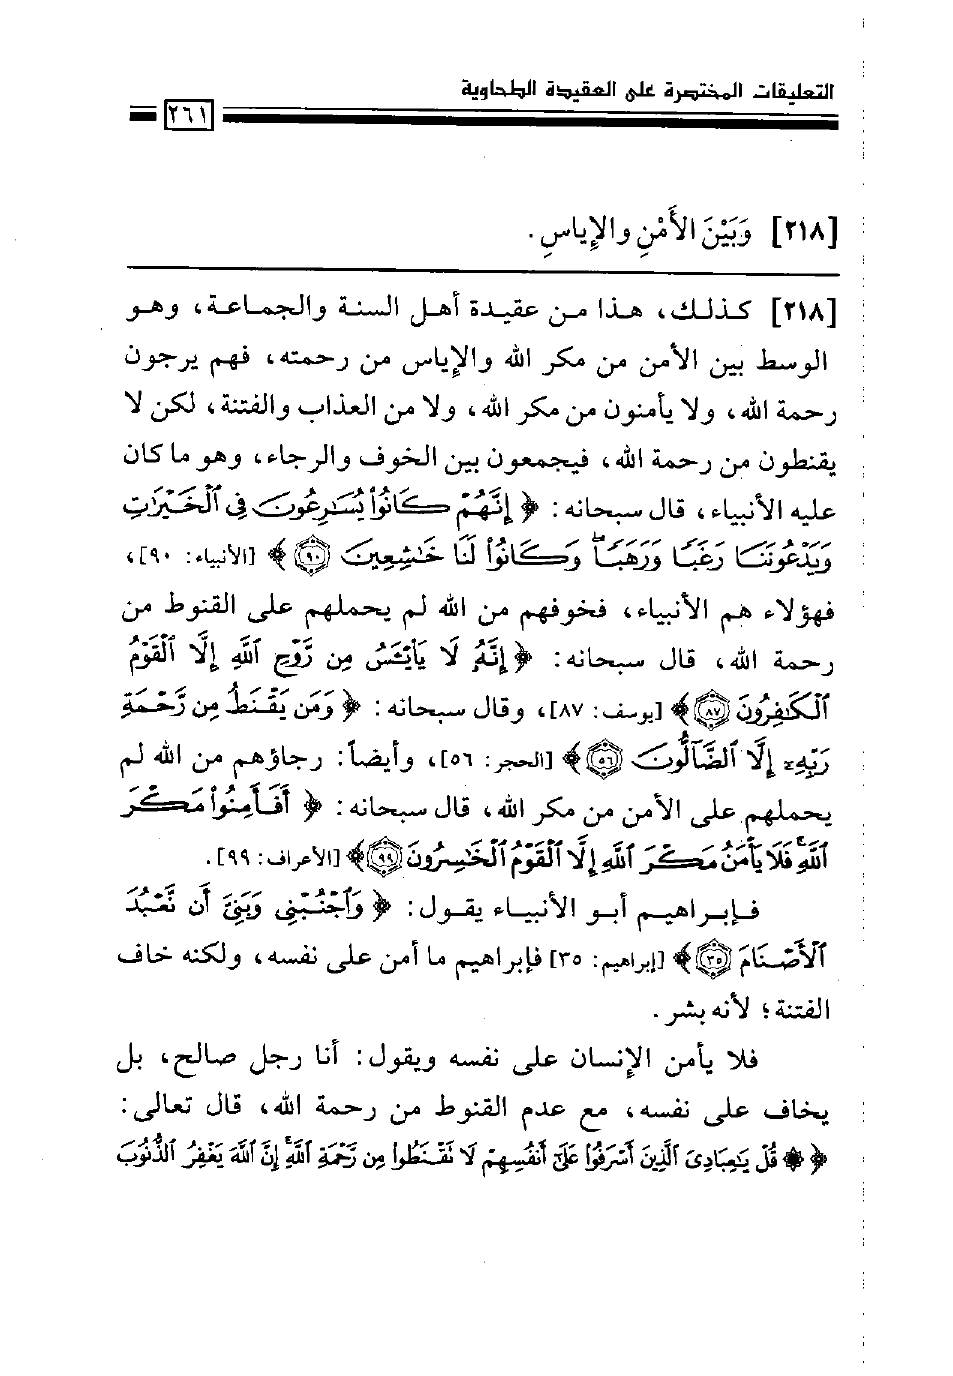 التعليقات المختصرة على العقيدة الطحاوية
٢٦١
[٢١٨] وَبَيْنَ الأَمْنِ والإِياسِ.
[٢١٨] كذلك، هذا من عقيدة أهل السنة والجماعة، وهو
الوسط بين الأمن من مكر الله والإياس من رحمته، فهم يرجون
رحمة الله، ولا يأمنون من مكر الله، ولا من العذاب والفتنة، لكن لا
يقنطون من رحمة الله، فيجمعون بين الخوف والرجاء، وهو ما كان
عليه الأنبياء، قال سبحانه: ﴿إِنَّهُمْ كَانُوا۟ يُسَٰرِعُونَ فِى ٱلْخَيْرَٰتِ
وَيَدْعُونَنَا رَغَبًا وَرَهَبًا ۖ وَكَانُوا۟ لَنَا خَٰشِعِينَ ٩٠﴾ [الأنبياء: ٩٠]،
فهؤلاء هم الأنبياء، فخوفهم من الله لم يحملهم على القنوط من
رحمة الله، قال سبحانه: ﴿إِنَّهُۥ لَا يَا۟يْـَٔسُ مِن رَّوْحِ ٱللَّهِ إِلَّا ٱلْقَوْمُ
ٱلْكَٰفِرُونَ ٨٧﴾ [يوسف: ٨٧]، وقال سبحانه: ﴿وَمَن يَقْنَطُ مِن رَّحْمَةِ
رَبِّهِۦٓ إِلَّا ٱلضَّآلُّونَ ٥٦﴾ [الحجر: ٥٦]، وأيضاً: رجاؤهم من الله لم
يحملهم على الأمن من مكر الله، قال سبحانه: ﴿أَفَأَمِنُوا۟ مَكْرَ
ٱللَّهِ ۚ فَلَا يَأْمَنُ مَكْرَ ٱللَّهِ إِلَّا ٱلْقَوْمُ ٱلْخَٰسِرُونَ ٩٩﴾ [الأعراف: ٩٩].
فإبراهيم أبو الأنبياء يقول: ﴿وَٱجْنُبْنِى وَبَنِىَّ أَن نَّعْبُدَ
ٱلْأَصْنَامَ ٣٥﴾ [إبراهيم: ٣٥] فإبراهيم ما أمن على نفسه، ولكنه خاف
الفتنة؛ لأنه بشر.
فلا يأمن الإنسان على نفسه ويقول: أنا رجل صالح، بل
يخاف على نفسه، مع عدم القنوط من رحمة الله، قال تعالى:
﴿۞ قُلْ يَٰعِبَادِىَ ٱلَّذِينَ أَسْرَفُوا۟ عَلَىٰٓ أَنفُسِهِمْ لَا تَقْنَطُوا۟ مِن رَّحْمَةِ ٱللَّهِ ۚ إِنَّ ٱللَّهَ يَغْفِرُ ٱلذُّنُوبَ